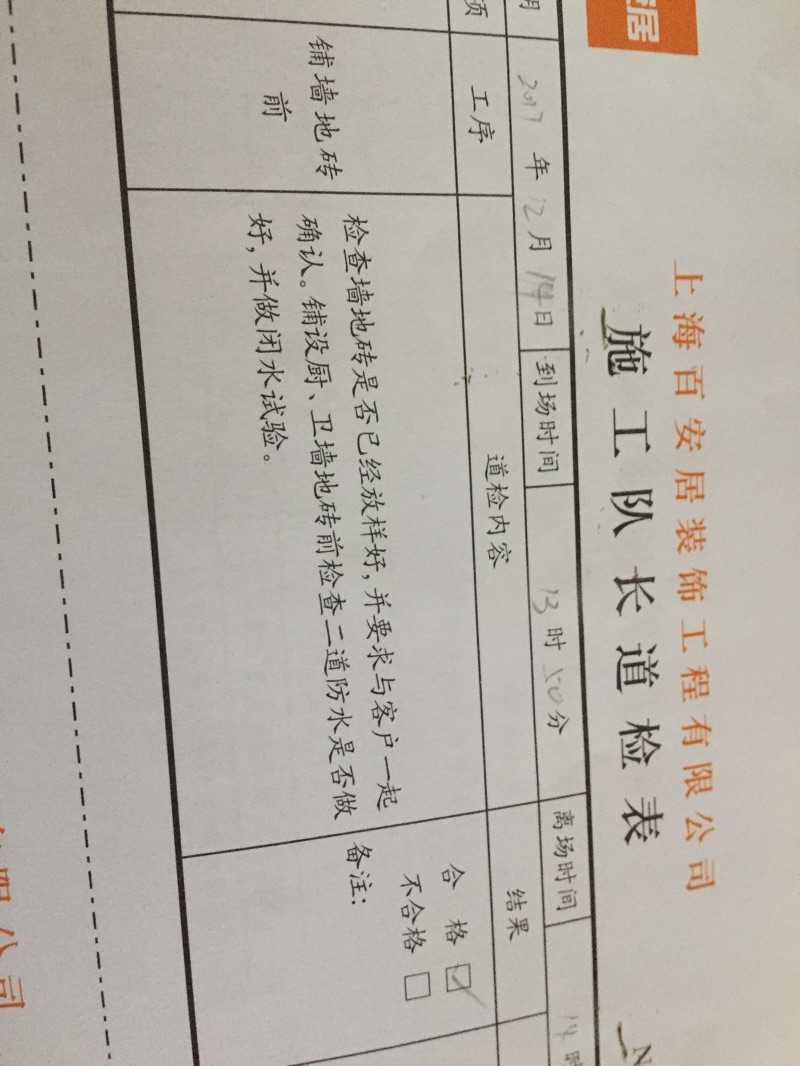 居
上海百安居装饰工程有限公司
施工队长道检表
N
2017年12月14日 到场时间 13时50分 离场时间 14时
工序 道检内容 结果
铺墙地砖
前
检查墙地砖是否已经放样好，并要求与客户一起
确认。铺设厨、卫墙地砖前检查二道防水是否做
好，并做闭水试验。
合 格 ☑
不合格 □
备注：
限公司